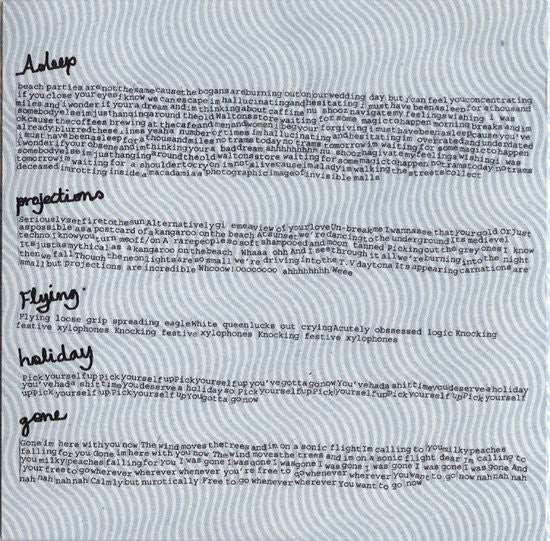 Asleep
beach parties are not the same cause the bogans are burning out on our wedding day but i can feel you concentrating
if you close your eyes i know we can escape im hallucinating and hesitating i must have been asleep for a thousand
miles and i wonder if your a dream and im thinking about caffine nu shooz navigate my feelings wishing i was
somebody else im just hanging around the old Waltons store waiting for some magic to happen morning breaks and im
ok cause the coffees brewing at the cafe and men and women i beg your forgiving i must have been asleep because you've
already blurred these lines yeah a number of times im hallucinating and hesitating im overrated and underdated
i must have been asleep for a thousand miles no trams today no trams tomorrow im waiting for some magic to happen
i wonder if your obsene and im thinking your a bad dream ahhhhhhhhh nu shooz navigate my feelings wishing i was
somebody else im just hanging around the old Waltons store waiting for some magic to happen no trams today no trams
tomorrow im waiting for a shoulder to cry on im not alive cause im a lady im walking the streets collect
deceased im rotting inside a macadamia a photographic image of invisible malls
projections
Seriously set fire to the sun Alternatively give me a view of your love Un-break me I wanna see that your gold Or just
as possible as a postcard of a kangaroo on the beach At sunset we're dancing to the underground Its med level
techno I know you turn me off/on A rare people so soft shampooed and moon tanned Picking out the grey ones I know
Its just as mythical as a kangaroo on the beach Whaaa ohh And I see through it all we're burning into the night
then we fall Though the neon lights are so small we're driving into the T.V daytona Its appearing carnations are
small but projections are incredible Whooow!Ooooooo ahhhhhhhh Weee
Flying
Flying loose grip spreading eagleWhite queenlucks out cryingAcutely obssessed logic Knocking
festive xylophones Knocking festive xylophones Knocking festive xylophones
holiday
Pick yourself up pick yourself upPick yourself up you've gotta go now You've had a shit time you deserve a holiday
you've had a shit time you deserve a holiday so Pick yourself upPick yourself upPick yourself upPick yourself
up Pick yourself upPick yourself up You gotta go now
gone
Gone im here with you now The wind moves the trees and im on a sonic flight Im calling to you milky peaches
falling for you Gone im here with you now The wind moves the trees and im on a sonic flight dear Im calling to
you milky peaches falling for you I was gone I was gone I was gone I was gone I was gone I was gone I was gone And
your free to go wherever wherever whenever you're free to go whenever wherever you want to go now nah nah nah
nah nah nah nah Calmly but nurotically Free to go whenever wherever You want to go now